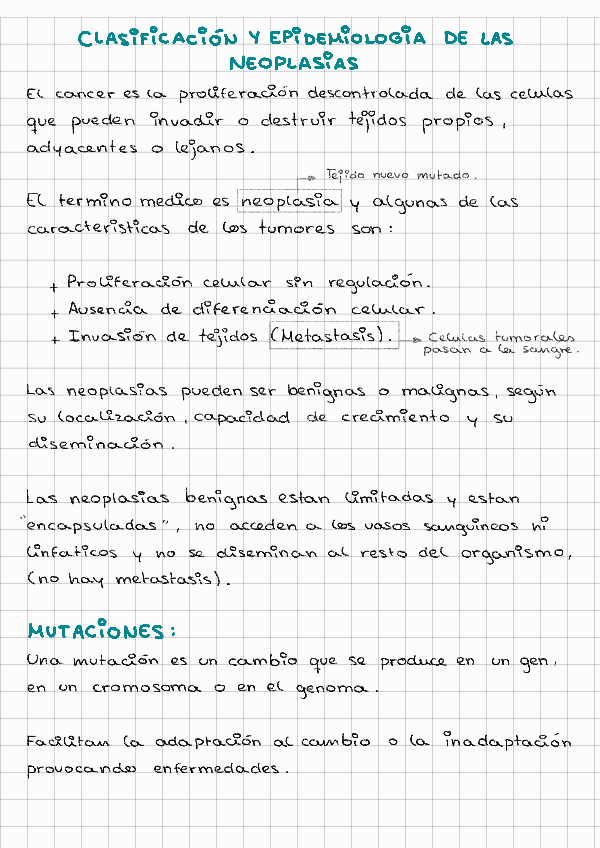 CLASIFICACIÓN Y EPIDEMIOLOGIA DE LAS
NEOPLASIAS
El cancer es la proliferación descontrolada de las celulas
que pueden invadir o destruir tejidos propios,
adyacentes o lejanos.
Tejido nuevo mutado.
El termino medico es neoplasia y algunas de las
caracteristicas de los tumores son:
+ Proliferación celular sin regulación.
+ Ausencia de diferenciación celular.
+ Invasión de tejidos (Metastasis).
Celulas tumorales
pasan a la sangre.
Las neoplasias pueden ser benignas o malignas, según
su localización, capacidad de crecimiento y su
diseminación.
Las neoplasias benignas estan limitadas y estan
"encapsuladas", no acceden a los vasos sanguineos ni
linfaticos y no se diseminan al resto del organismo,
(no hay metastasis).
MUTACIONES:
Una mutación es un cambio que se produce en un gen,
en un cromosoma o en el genoma.
Facilitan la adaptación al cambio o la inadaptación
provocando enfermedades.